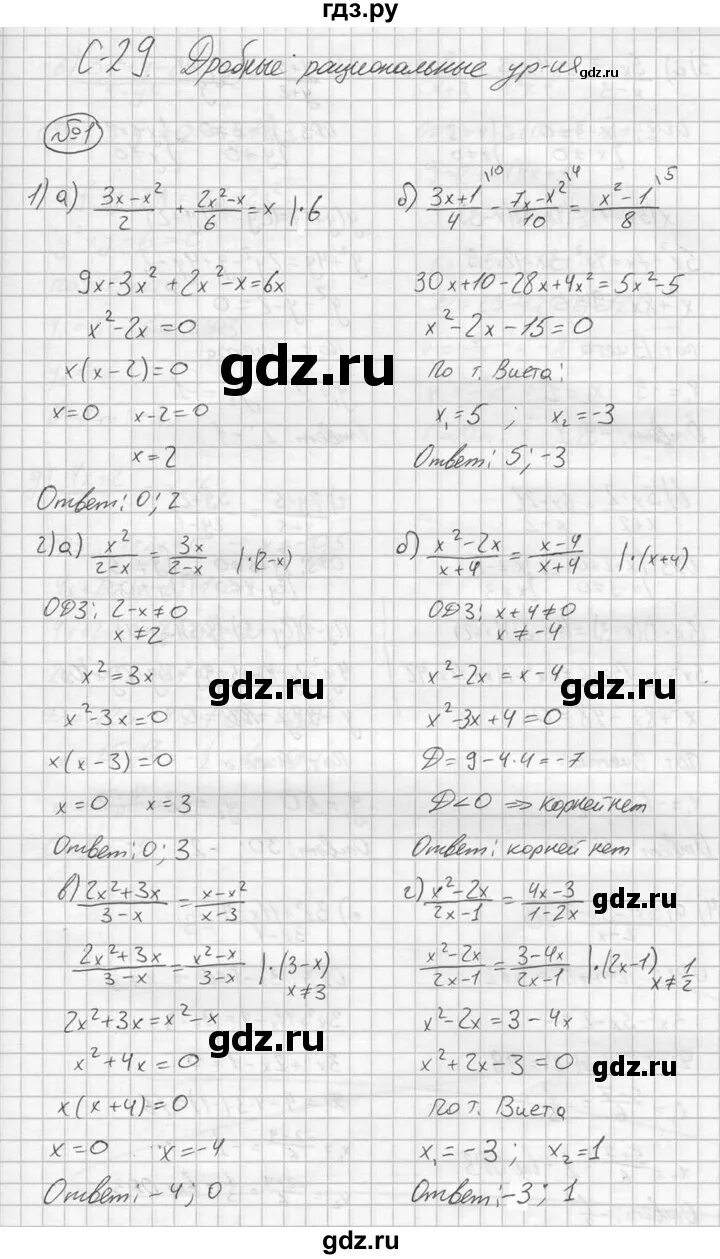 гдз.ру
С-29 Дробные рациональные ур-ия
№1
1) а) (3x-x²)/2 + (2x²-x)/6 = x |·6
9x-3x²+2x²-x=6x
x²-2x=0
x(x-2)=0
x=0 x-2=0
x=2
Ответ: 0; 2
б) (3x+1)/4 \10 - (7x-x²)/10 \4 = (x²-1)/8 \5
30x+10-28x+4x²=5x²-5
x²-2x-15=0
По т. Виета:
x₁=5 ; x₂=-3
Ответ: 5; -3
gdz.ru
2) а) x²/(2-x) = 3x/(2-x) |·(2-x)
ОДЗ: 2-x≠0
x≠2
x²=3x
x²-3x=0
x(x-3)=0
x=0 x=3
Ответ: 0; 3
б) (x²-2x)/(x+4) = (x-4)/(x+4) |·(x+4)
ОДЗ: x+4≠0
x≠-4
x²-2x=x-4
x²-3x+4=0
D=9-4·4=-7
D<0 ⇒ корней нет
Ответ: корней нет
gdz.ru
gdz.ru
в) (2x²+3x)/(3-x) = (x-x²)/(x-3)
(2x²+3x)/(3-x) = (x²-x)/(3-x) |·(3-x)
x≠3
2x²+3x=x²-x
x²+4x=0
x(x+4)=0
x=0 x=-4
Ответ: -4; 0
г) (x²-2x)/(2x-1) = (4x-3)/(1-2x)
(x²-2x)/(2x-1) = (3-4x)/(2x-1) |·(2x-1)
x≠1/2
x²-2x=3-4x
x²+2x-3=0
По т. Виета
x₁=-3; x₂=1
Ответ: -3; 1
gdz.ru
gdz.ru
gdz.ru